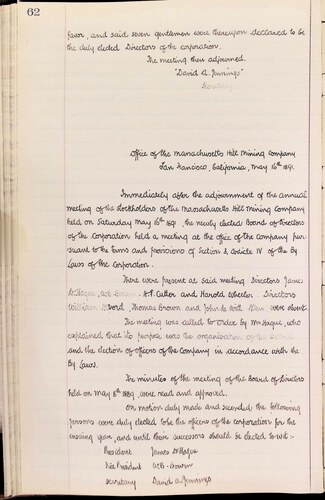 62
favor, and said seven gentlemen were thereupon declared to be
the duly elected Directors of the corporation.
The meeting then adjourned.
"David A. Jennings"
Secretary
Office of the Massachusetts Hill Mining Company
San Francisco, California, May 16th 1891.
Immediately after the adjournment of the annual
meeting of the stockholders of the Massachusetts Hill Mining Company
held on Saturday May 16th 1891, the newly elected Board of Directors
of the Corporation held a meeting at the office of the Company pur-
suant to the terms and provisions of Section 2, Article IV of the By
Laws of the Corporation.
There were present at said meeting Directors James
D. Hague, Cutler and Harold Wheeler. Directors
William Bond, Thomas Brown and John were absent.
The meeting was called to Order by Mr Hague, who
explained that its purpose was the organization of the Board
and the election of officers of the Company in accordance with the
By Laws.
The minutes of the meeting of the Board of Directors
held on May were read and approved.
On motion duly made and seconded the following
persons were duly elected to be the officers of the corporation for the
ensuing year, and until their successors should be elected to wit:-
President James D. Hague
Vice President
Secretary David A. Jennings